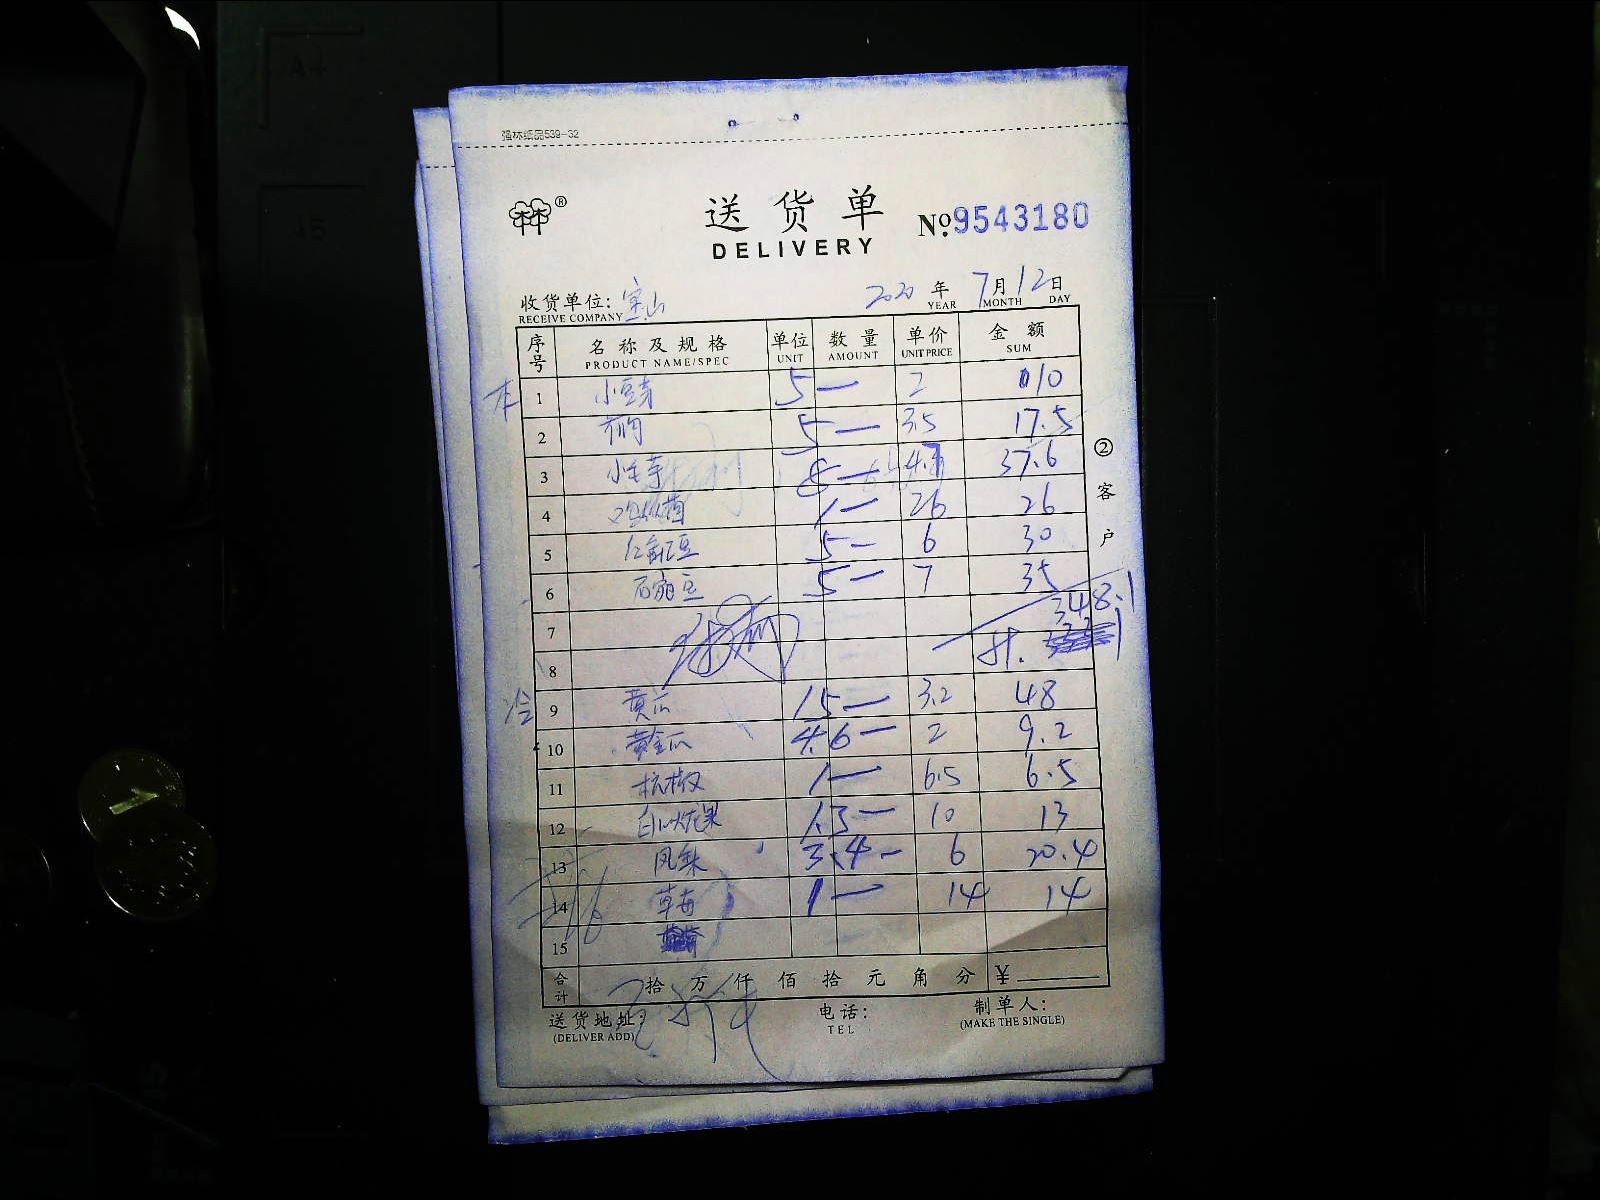 强林纸品539-32
林林®
送货单
DELIVERY
No.9543180
收货单位: 宝山
RECEIVE COMPANY
2020 年 7 月 12 日
YEAR MONTH DAY
序号 名称及规格 单位 数量 单价 金额
PRODUCT NAME/SPEC UNIT AMOUNT UNIT PRICE SUM
1 小豆芽 5 — 2 10
2 5 — 3.5 17.5
3 小毛芋 8 — 4.7 37.6
4 1 — 26 26
5 5 — 6 30
6 5 — 7 35
7 348.1
8
冷
9 黄瓜 15 — 3.2 48
10 黄金瓜 4.6 — 2 9.2
11 杭椒 1 — 6.5 6.5
12 白火龙果 1.3 — 10 13
13 凤梨 3.4 — 6 20.4
14 草莓 1 — 14 14
15
合计 拾 万 仟 佰 拾 元 角 分 ¥
送货地址:
(DELIVER ADD)
电话:
TEL
制单人:
(MAKE THE SINGLE)
②客户